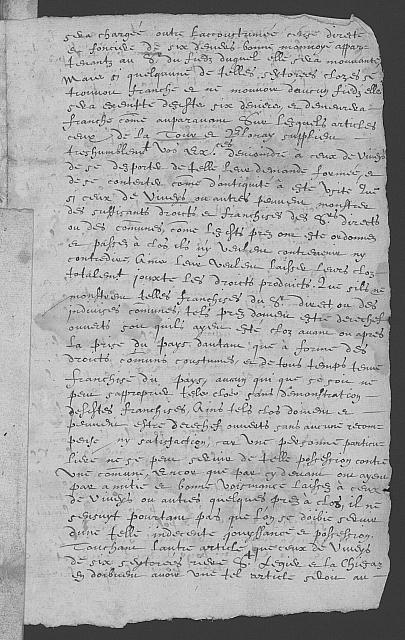 sera chargée outre l'accoustumée cense directe
et fonciere de six deniers bonne monnoye appar-
tenants au Sr du fiedz duquel elle sera mouvante
Mais si quelqu'une de telles sextorees clozes se
trouvoit franche et ne mouvoir d'aucun fiedz elle
sera exempte desdits six deniers et demeurera
franche come auparavant Sur lesquels articles
ceux de la Tour et Blonay supplient
treshumblement vos Exces demander a ceux de Viveys
de se desporter de telle leur demande formée et
de se contenter come d'antiquité a esté usité Que
si ceux de Viveys ou autres peuvent monstrer
des suffisants droicts et franchises des Srs directs
ou des comunes, come lesdits prez ont esté ordonnez
et passez a cloz ils ny veulent contrevenir ny
contredire Ains leur veulent laisser leurs cloz
totalement jouxte les droicts produicts. Que s'ils ne
monstrent telles franchises du Sr direct ou des
indivises comunes, tels prez doivent estre derechef
ouverts soit quils ayent esté cloz avant ou apres
la prise du pays, d'autant que a forme des
droicts comuns coustumes, et de tous temps tenue
franchise du pays, aucun qui que ce soit ne
peut s'approprier telz cloz sans demonstration
desdittes franchises, Ains tels clos doivent et
peuvent estre derechef ouverts sans aucune recom-
pense, ny satisfaction, car une personne particu-
liere ne se peut servir de telle possession contre
une comune, Encor que par cy devant on ayent
par amitié et bonne voisinance laissez a ceux
de Viveys ou autres quelques prez a cloz, il ne
sensuyt pourtant pas que l'on se doibve servir
d'une telle indecente jouyssance et possession.
Touchant l'autre article que ceux de Viveys
de six sextorees riere St Legier et la Chiesaz
en doibvent avoir une tel article seroit au